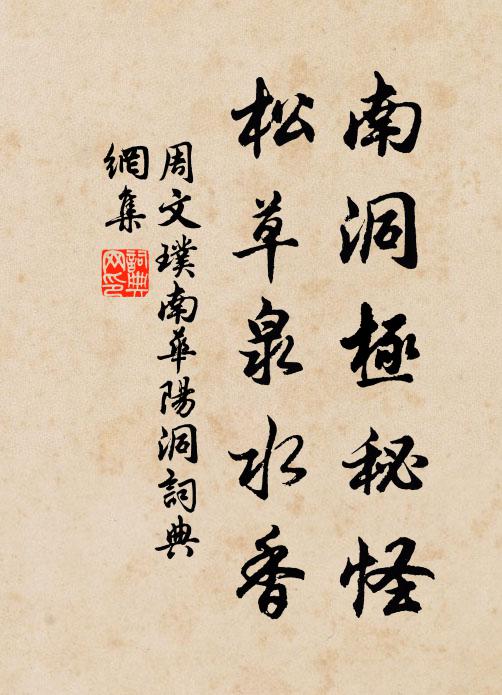 南洞極秘怪
松草泉水香
周文璞南華陽洞詞典
網集
詞典
网印